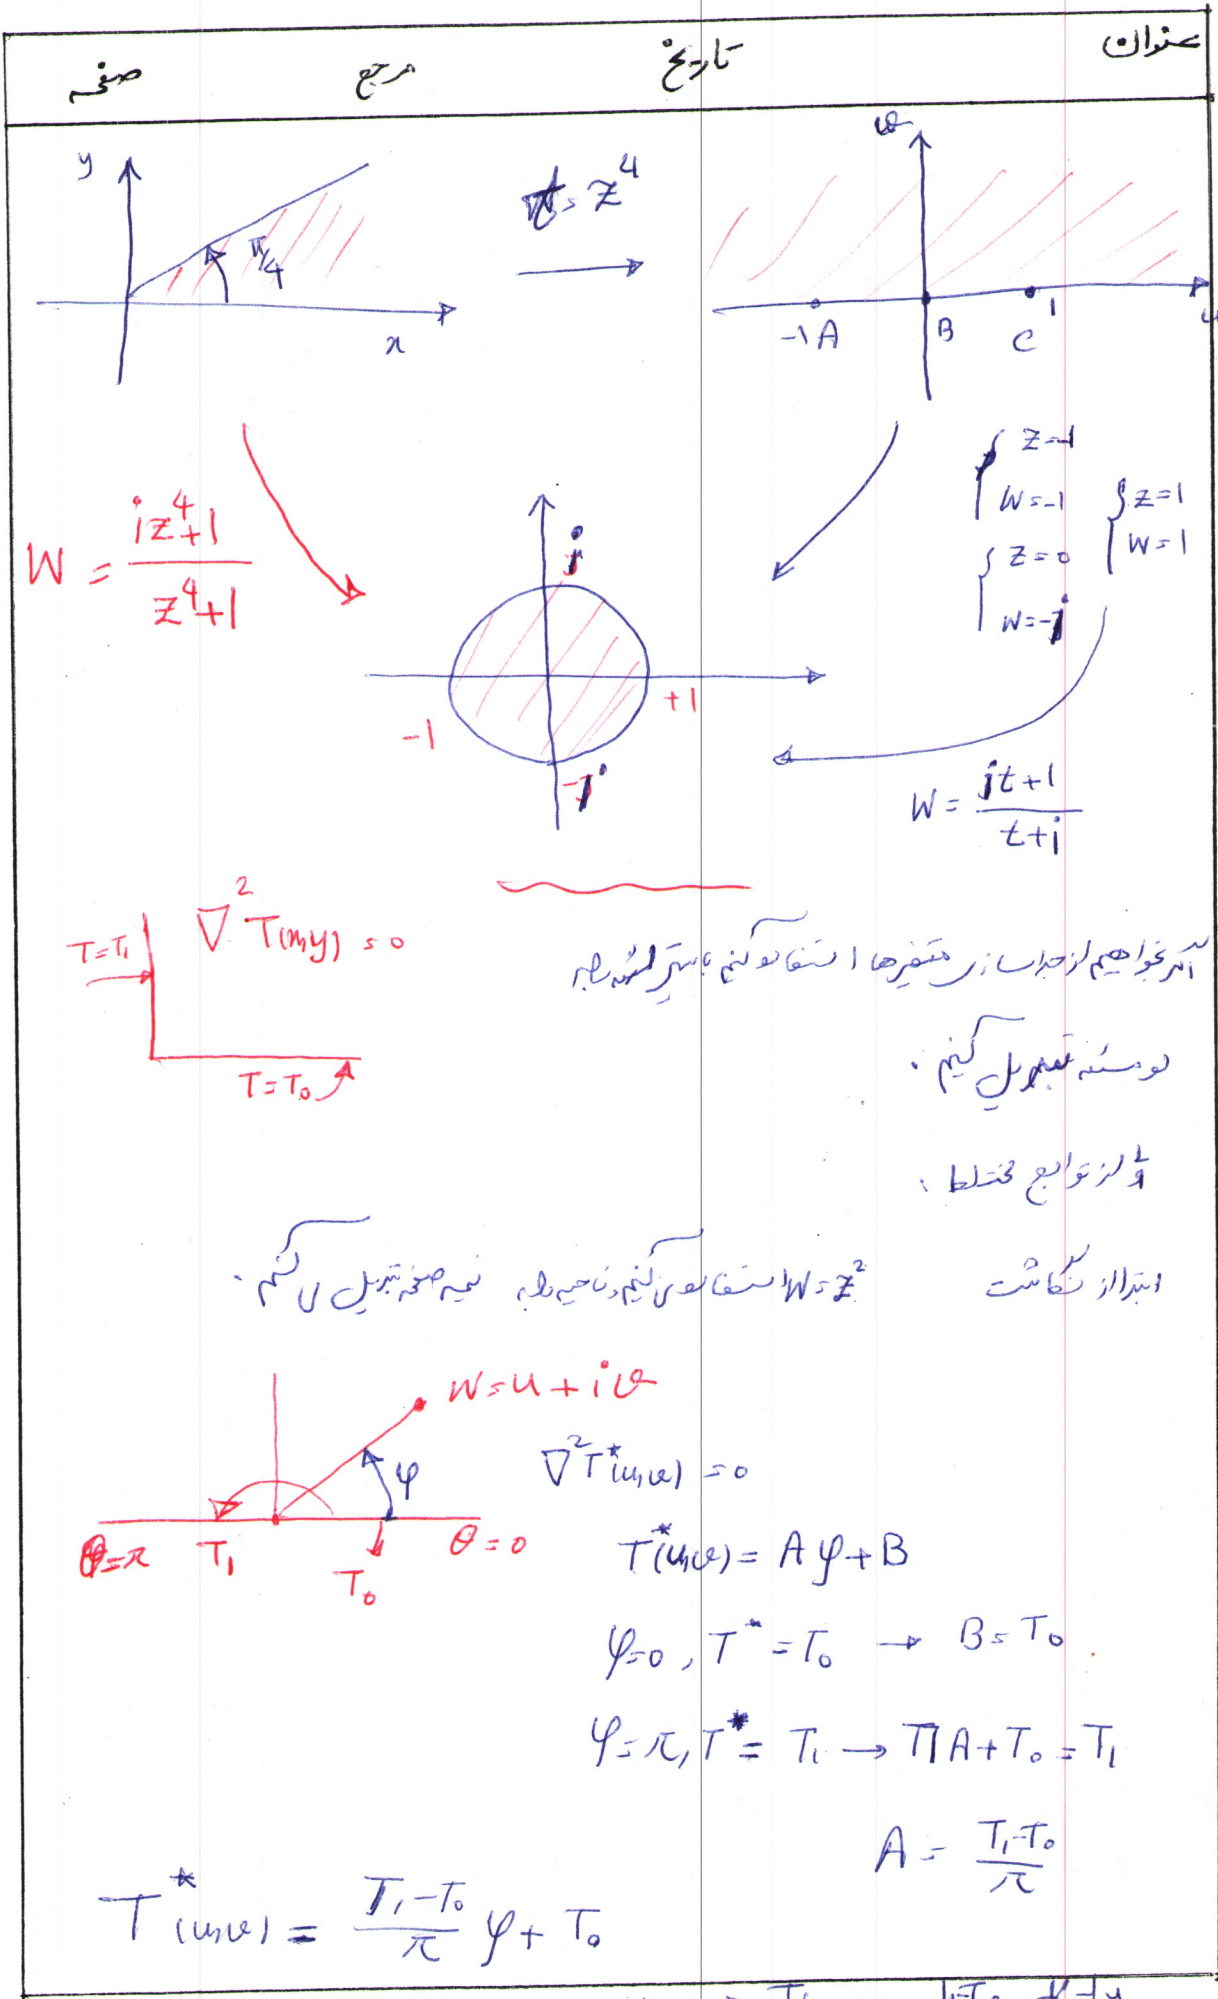 عنوان تاریخ مرجع صفحه
y
π/4
x
t = z^4
v
-1 A B C 1
u
{ z=-1
w=-1
{ z=1
w=1
{ z=0
w=-j
W = (iz^4+1)/(z^4+1)
j
-1 +1
-j
W = (jt+1)/(t+i)
T=T₁
∇² T(x,y) = 0
T=T₀
اگر بخواهیم از جداسازی متغیرها استفاده کنیم بایستی مسئله را به
دو مسئله تبدیل کنیم .
از توابع مختلط :
ابتدا از نگاشت W=z² استفاده می کنیم و ناحیه را به نیم صفحه تبدیل می کنیم .
W=u+iv
φ
θ=π T₁ T₀ θ=0
∇²T*(u,v) = 0
T*(u,v) = Aφ+B
φ=0, T* = T₀ → B = T₀
φ=π, T* = T₁ → πA+T₀ = T₁
A = (T₁-T₀)/π
T*(u,v) = (T₁-T₀)/π φ + T₀